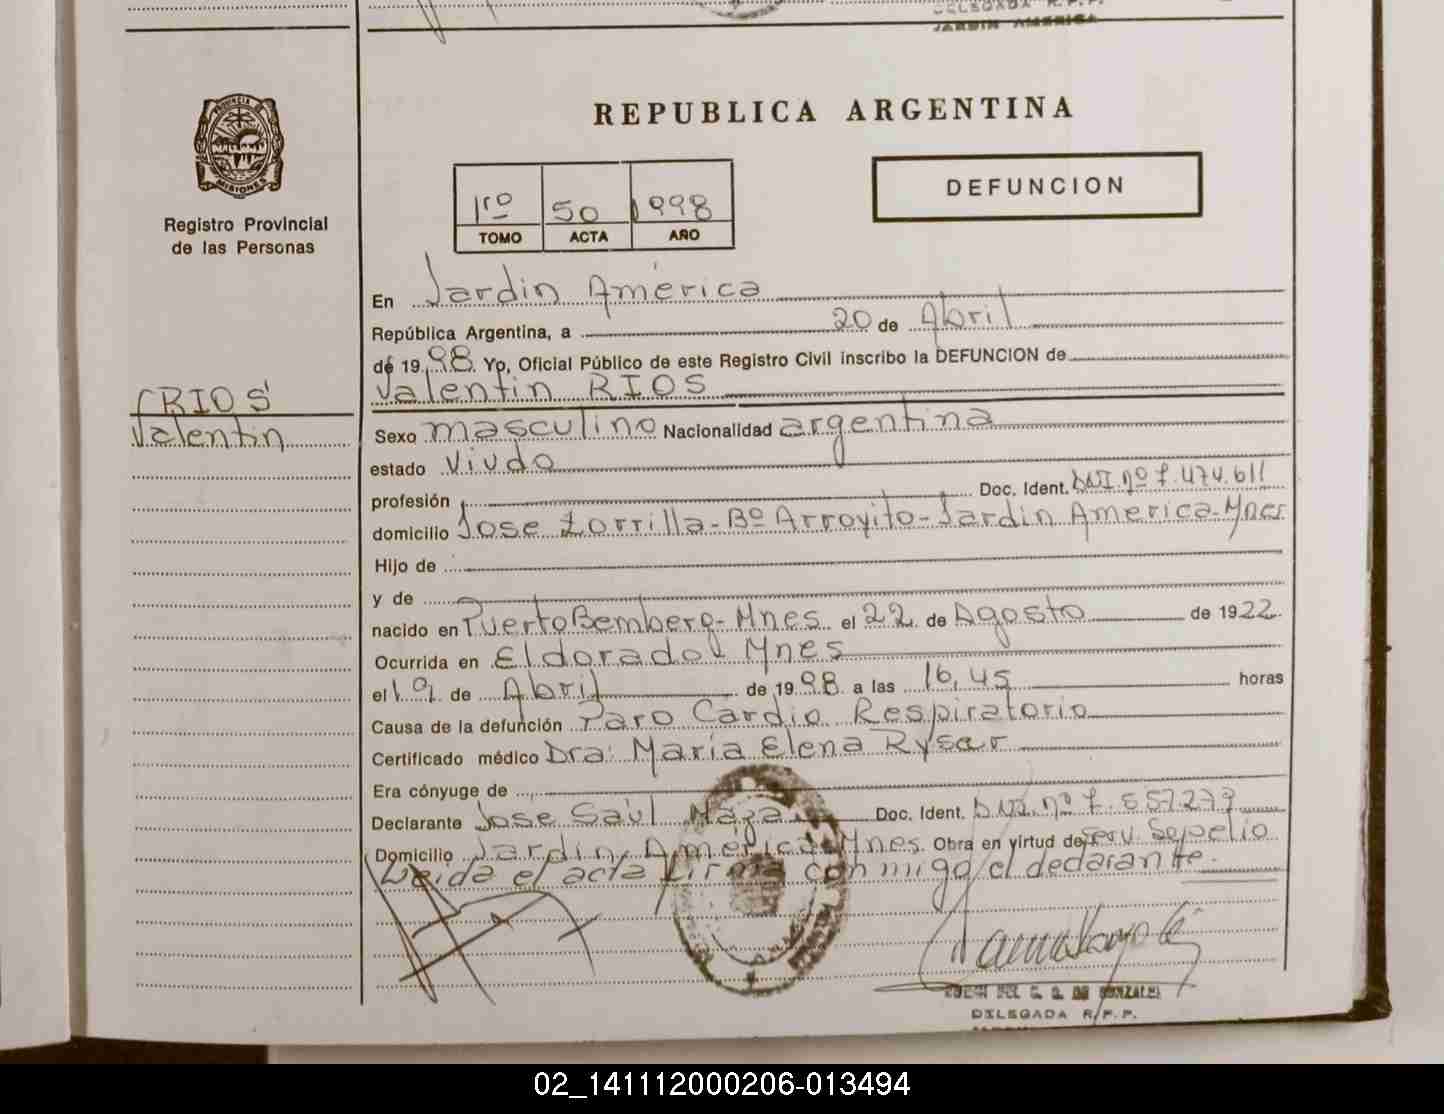 DELEGADA R.P.P.
JARDIN AMERICA
PROVINCIA DE
MISIONES
Registro Provincial
de las Personas
REPUBLICA ARGENTINA
1ro 50 1998
TOMO ACTA AÑO
DEFUNCION
En Jardin América
República Argentina, a 20 de Abril
de 1998 Yo, Oficial Público de este Registro Civil inscribo la DEFUNCION de
Valentin RIOS
RIOS
Valentin
Sexo masculino Nacionalidad argentina
estado Viudo
profesión Doc. Ident. DNI. nº 7.474.611
domicilio Jose Zorrilla-Bº Arroyito-Jardin America-Mnes
Hijo de
y de
nacido en Puerto Bemberg-Mnes. el 22 de Agosto de 1922
Ocurrida en Eldorado Mnes
el 19 de Abril de 1998 a las 16,45 horas
Causa de la defunción Paro Cardio Respiratorio
Certificado médico Dra: Maria Elena Rysar
Era cónyuge de
Declarante Jose Saúl Maza Doc. Ident. DNI. nº 7.557.277
Domicilio Jardin America-Mnes. Obra en virtud de Serv. Sepelio
Leida el acta firma conmigo el declarante.
DE GONZALEZ
DELEGADA R.P.P.
02_141112000206-013494